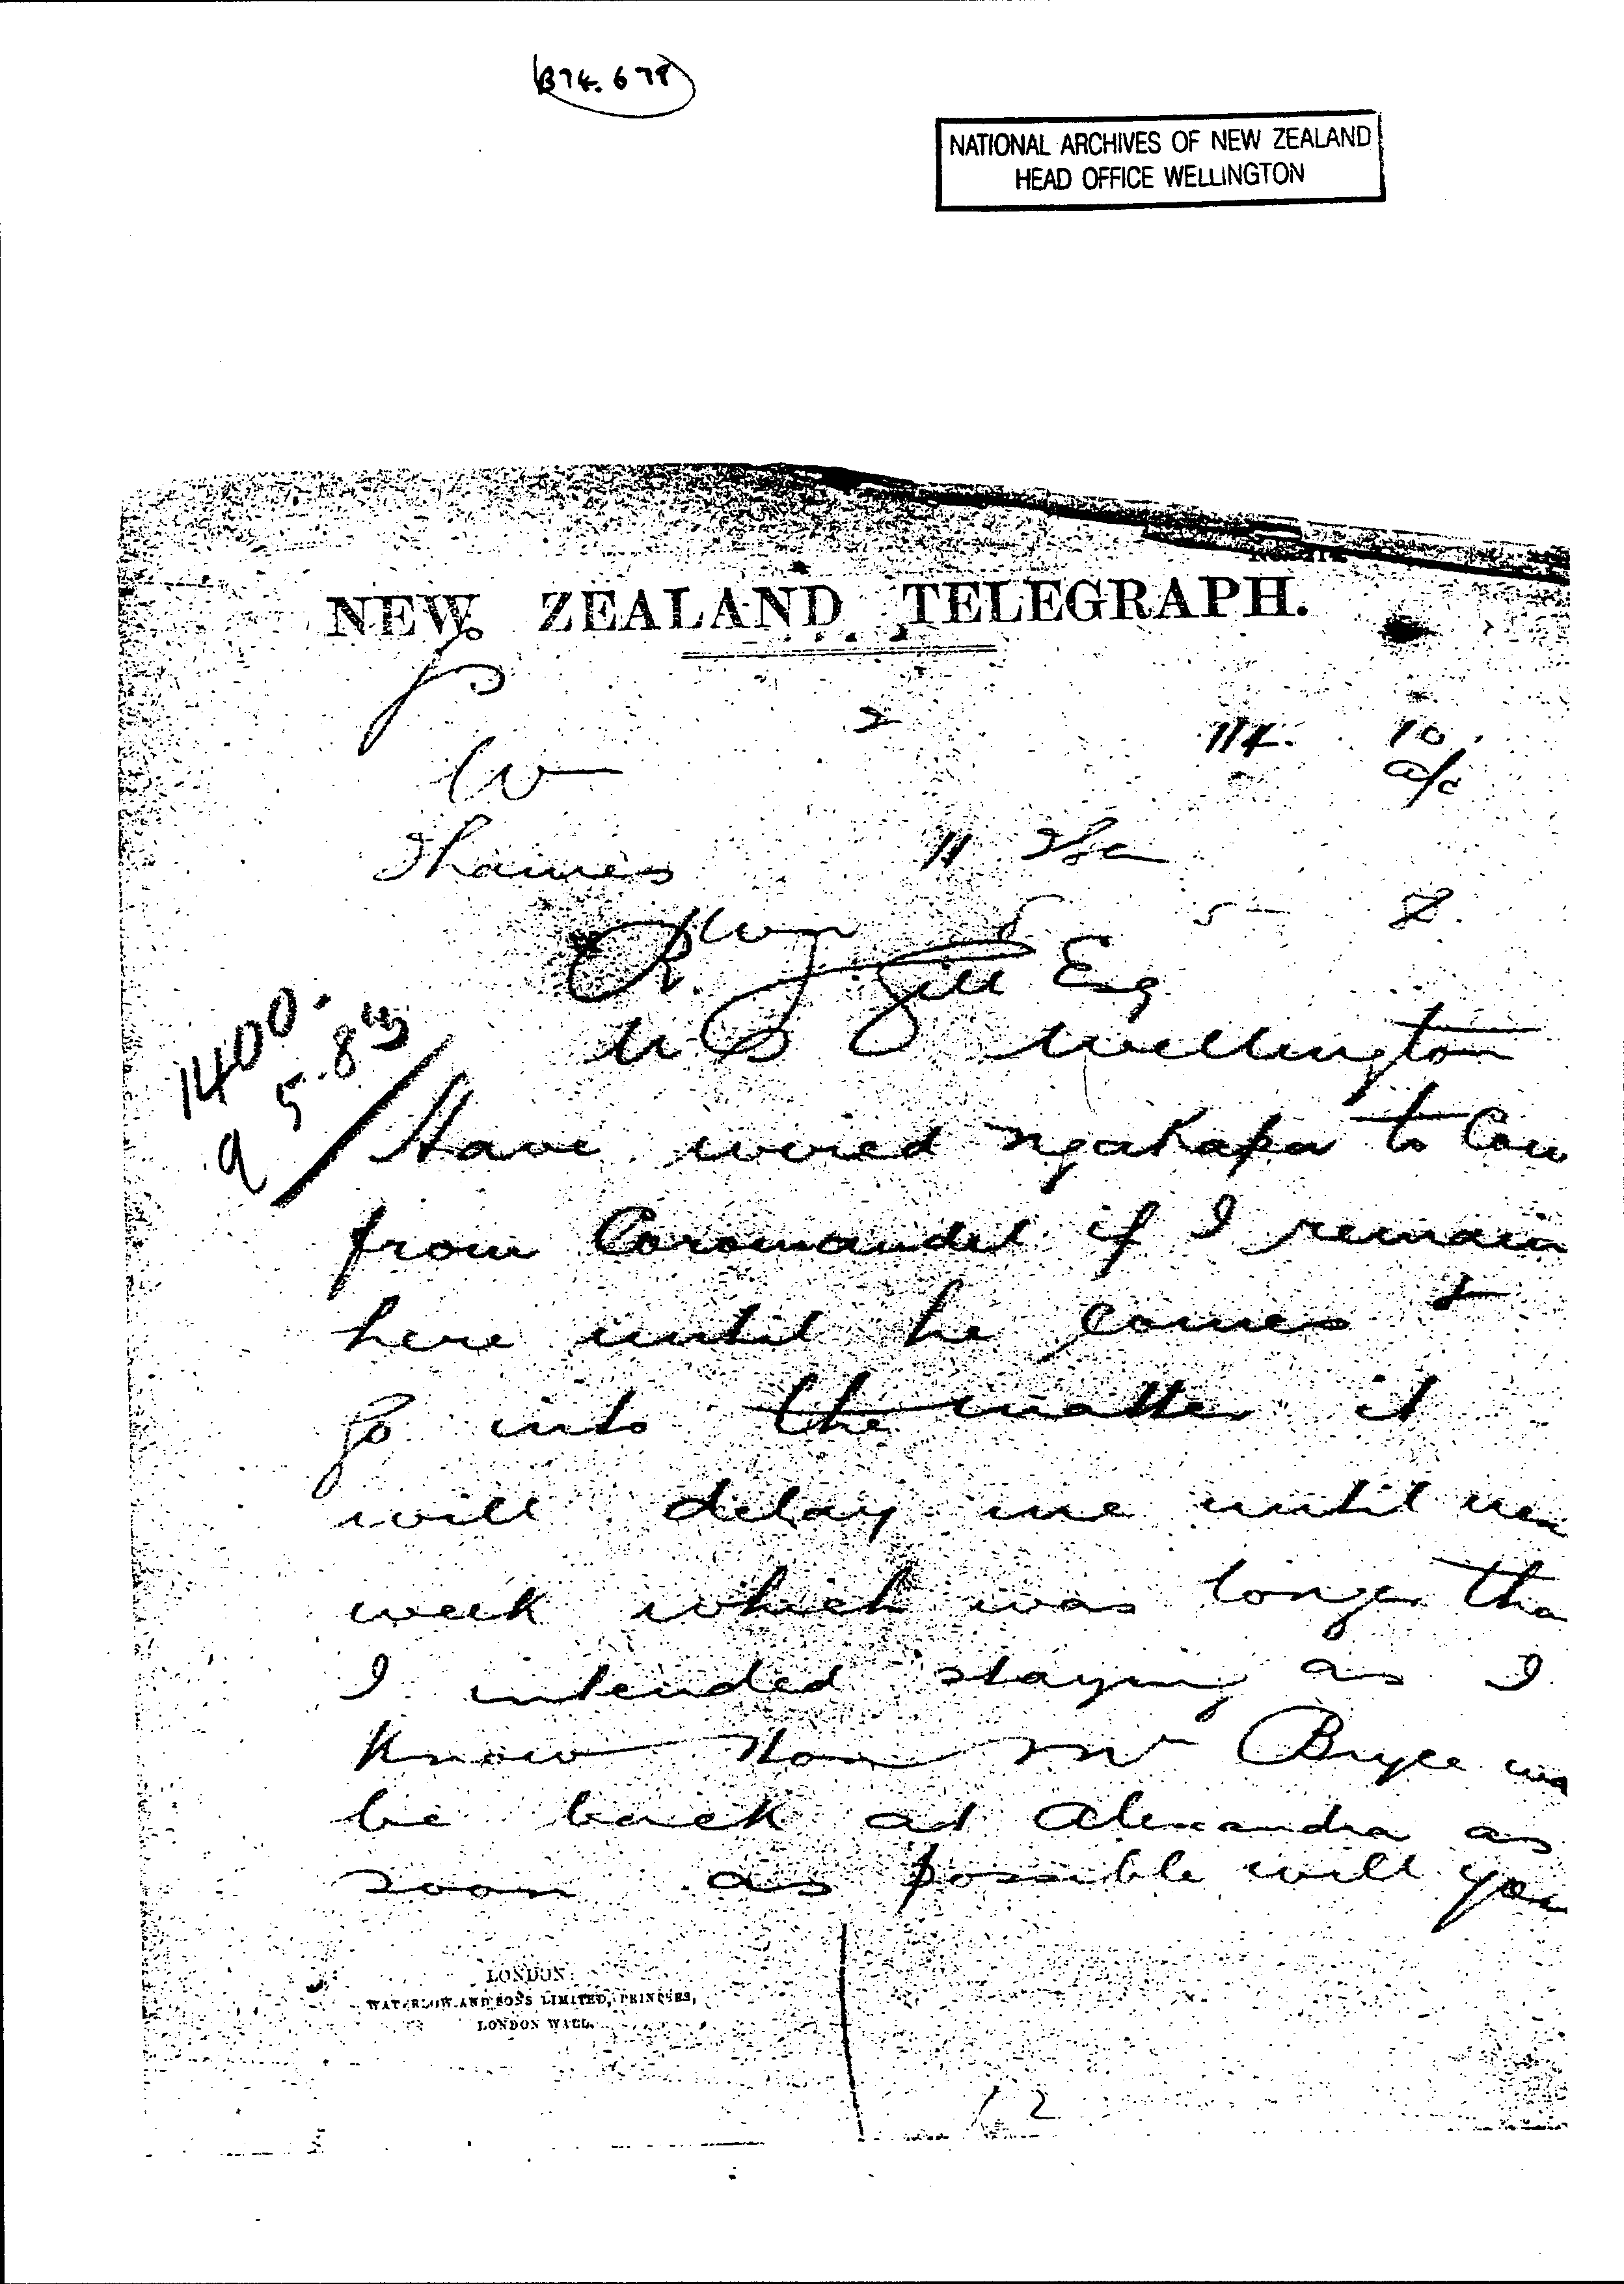 B74. 678
NATIONAL ARCHIVES OF NEW ZEALAND
HEAD OFFICE WELLINGTON
NEW ZEALAND TELEGRAPH.
2 114. 10
a/c
Thames 11
5 - 8.
R. J. Gill Esq
Wellington
1400.
9 5.8
Have wired Ngakapa to Com
from Coromandel if I remain
here until he comes &
go into the matter it
will delay me until nex
week which was longer tha
I intended staying as I
know Hon Mr Bryce wd
be back at Alexandra as
soon as possible will you
LONDON:
WATERLOW AND SONS LIMITED, PRINTERS,
LONDON WALL.
12